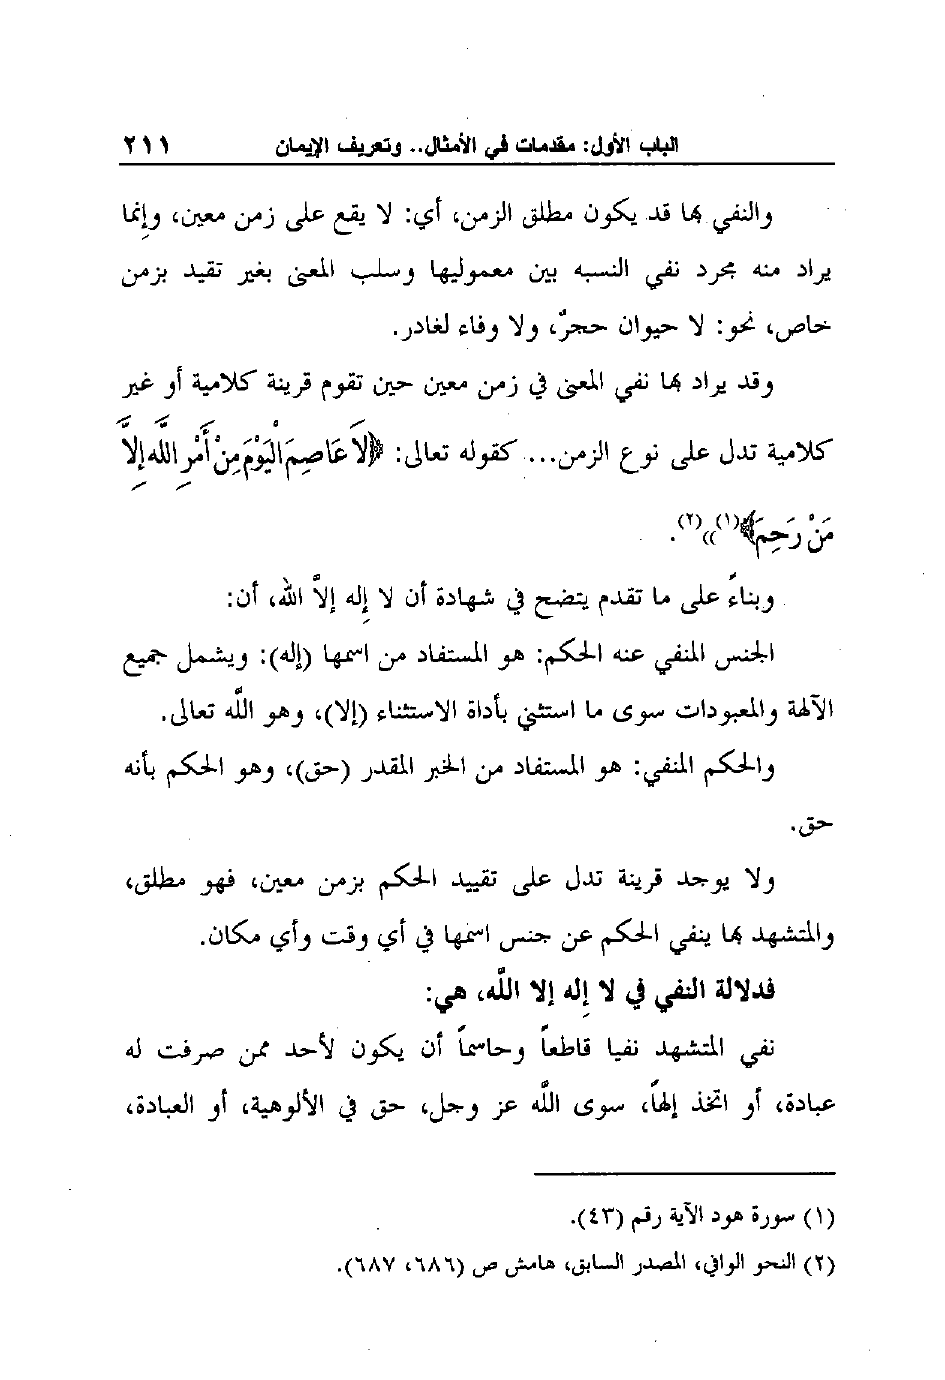 الباب الأول: مقدمات في الأمثال.. وتعريف الإيمان ٢١١
والنفي بها قد يكون مطلق الزمن، أي: لا يقع على زمن معين، وإنما
يراد منه مجرد نفي النسبه بين معموليها وسلب المعنى بغير تقيد بزمن
خاص، نحو: لا حيوان حجرٌ، ولا وفاء لغادر.
وقد يراد بها نفي المعنى في زمن معين حين تقوم قرينة كلامية أو غير
كلامية تدل على نوع الزمن... كقوله تعالى: ﴿لاَ عَاصِمَ الْيَوْمَ مِنْ أَمْرِ اللَّهِ إِلاَّ
مَنْ رَحِمَ﴾(١)»(٢).
وبناءً على ما تقدم يتضح في شهادة أن لا إله إلاَّ الله، أن:
الجنس المنفي عنه الحكم: هو المستفاد من اسمها (إله): ويشمل جميع
الآلهة والمعبودات سوى ما استثني بأداة الاستثناء (إلا)، وهو اللَّه تعالى.
والحكم المنفي: هو المستفاد من الخبر المقدر (حق)، وهو الحكم بأنه
حق.
ولا يوجد قرينة تدل على تقييد الحكم بزمن معين، فهو مطلق،
والمتشهد بها ينفي الحكم عن جنس اسمها في أي وقت وأي مكان.
فدلالة النفي في لا إله إلا اللَّه، هي:
نفي المتشهد نفيا قاطعاً وحاسماً أن يكون لأحد ممن صرفت له
عبادة، أو اتخذ إلهاً، سوى اللَّه عز وجل، حق في الألوهية، أو العبادة،
(١) سورة هود الآية رقم (٤٣).
(٢) النحو الوافي، المصدر السابق، هامش ص (٦٨٦، ٦٨٧).